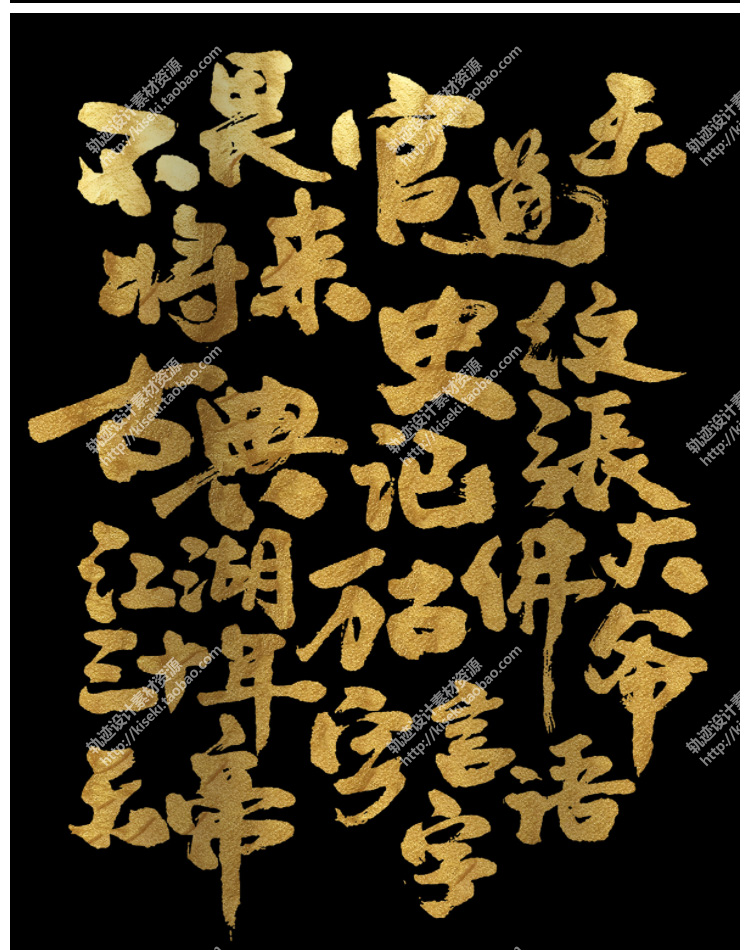 不畏
官道
天
将来
史记
纹張
古典
江湖
万古
佛
大爷
三十年
字
言
天帝
字
语
轨迹设计素材资源
http://kiseki.taobao.com
轨迹设计素材资源
http://kiseki.taobao.com
轨迹设计素材资源
http://kiseki.taobao.com
轨迹设计素材资源
http://kiseki.taobao.com
轨迹设计素材资源
http://kiseki.taobao.com
轨迹设计素材资源
http://kiseki.taobao.com